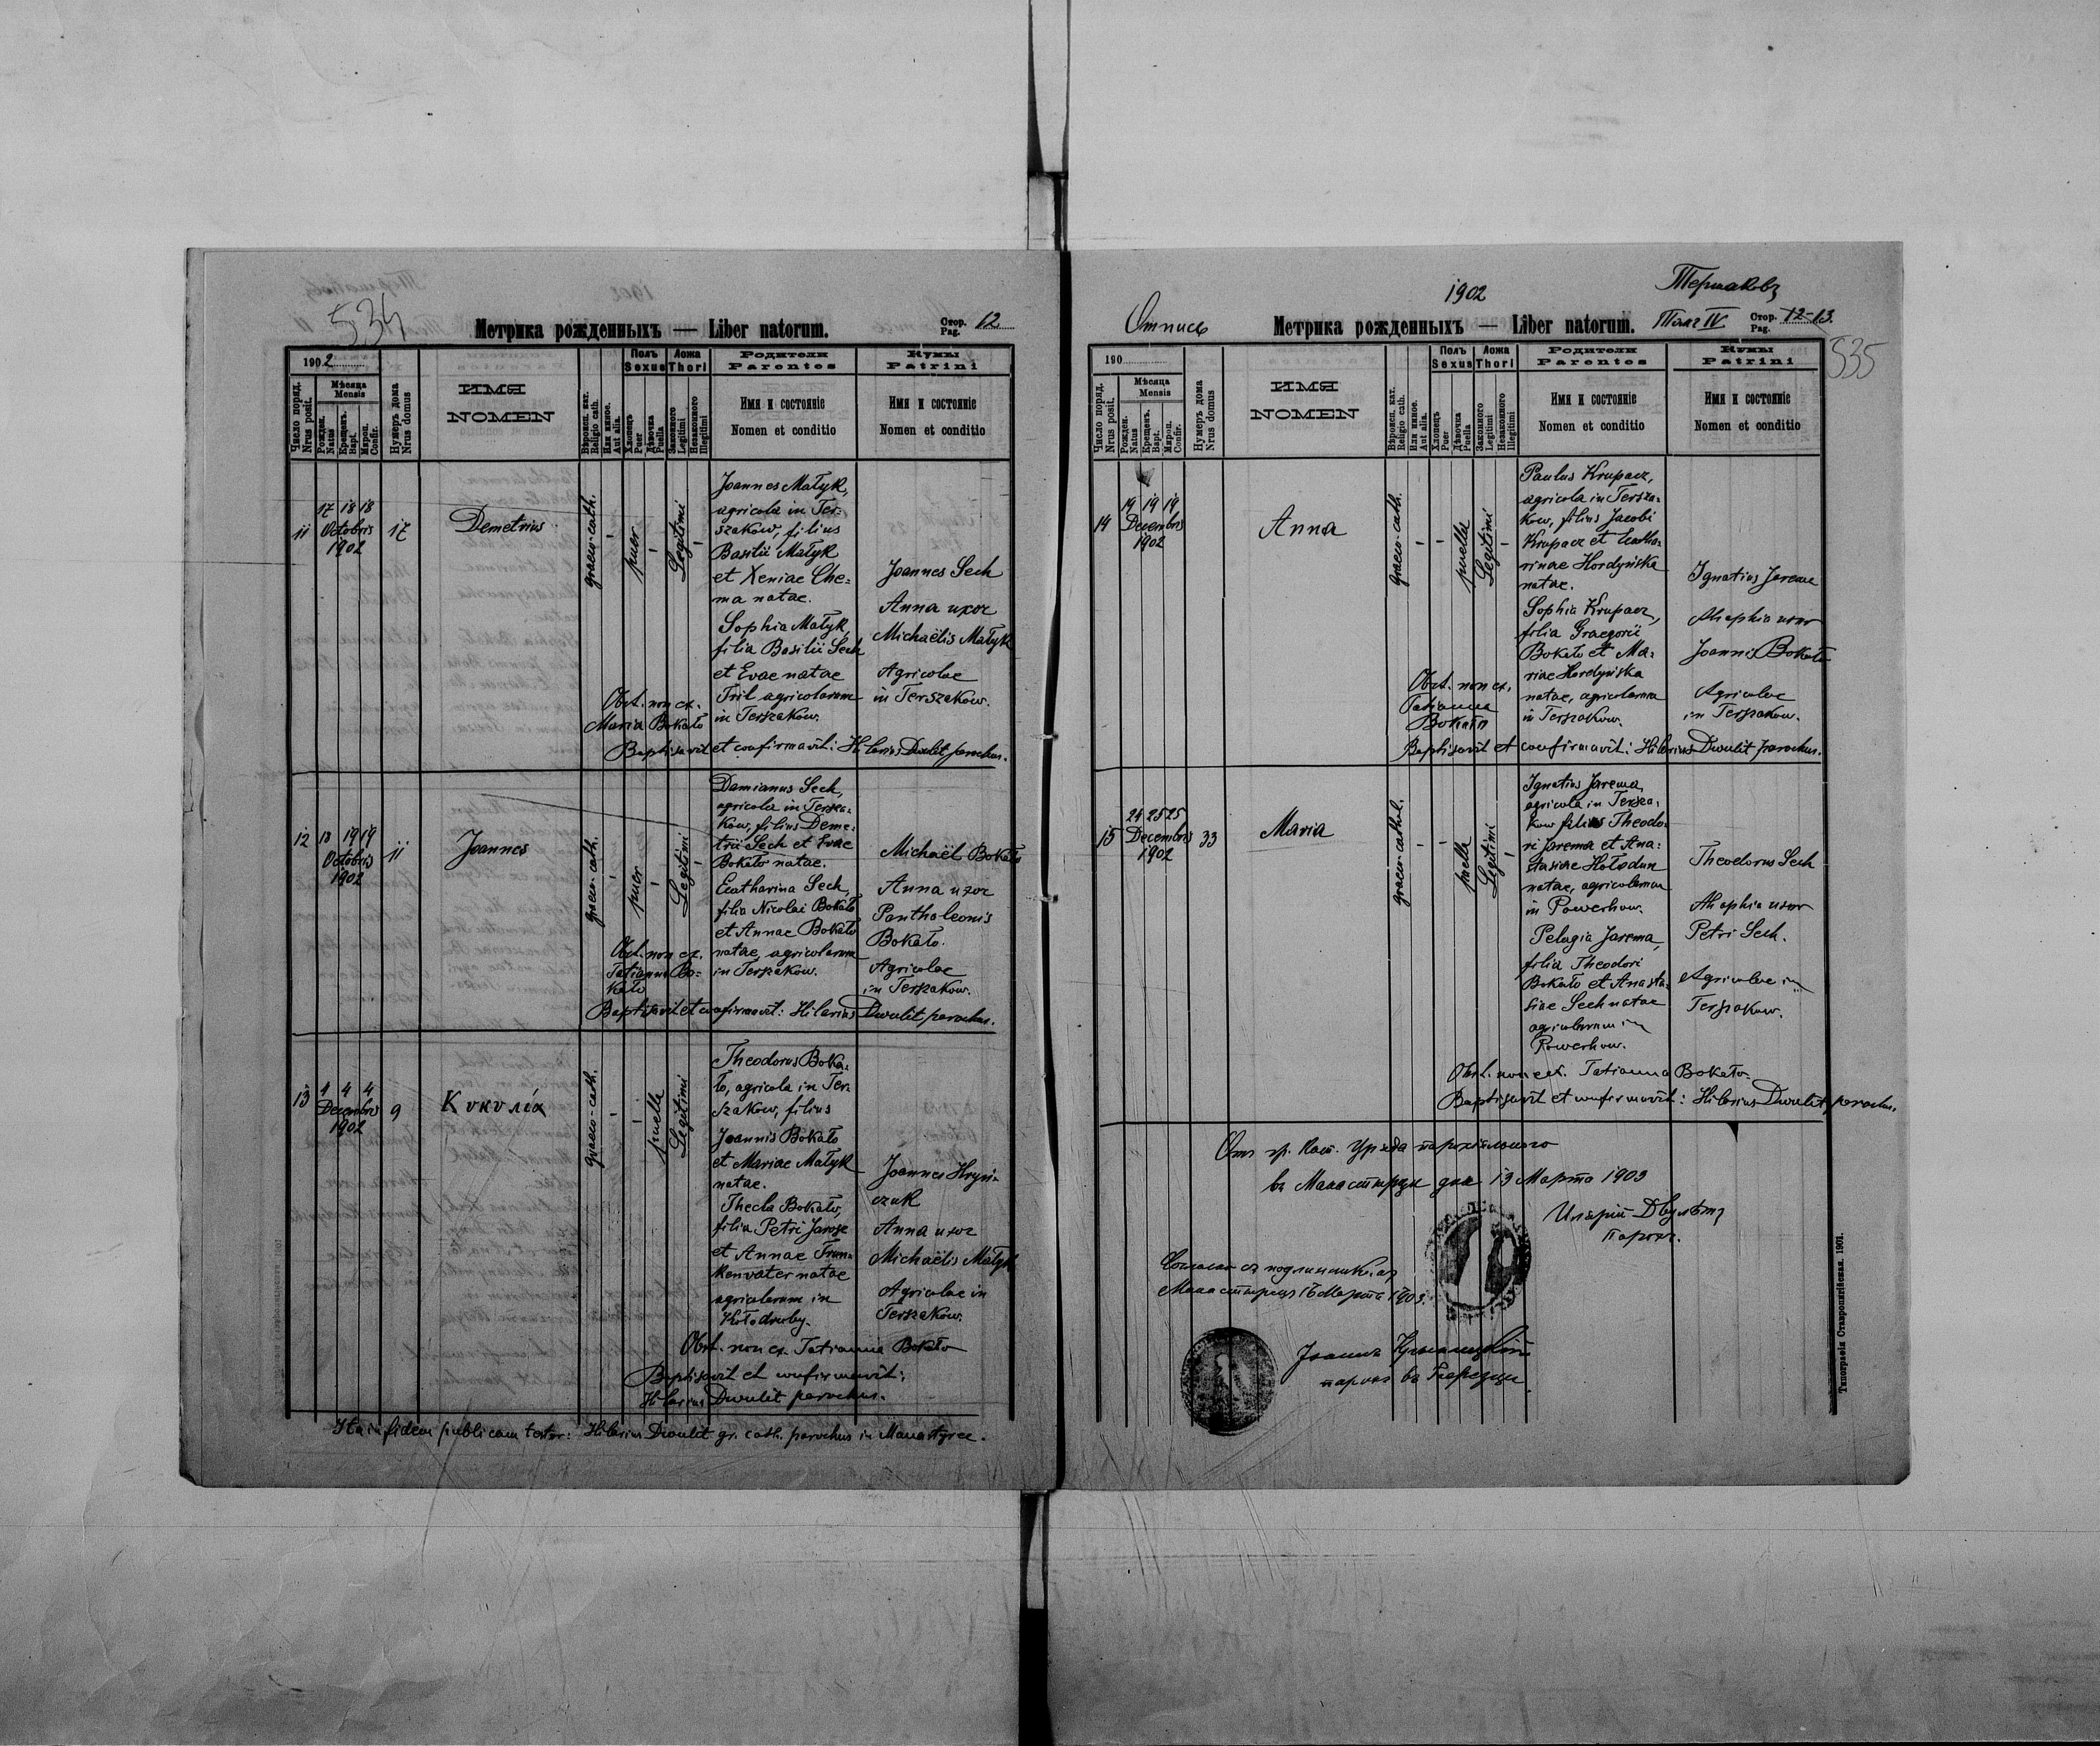 534
Метрика рожденныхъ — Liber natorum.
Стор. Pag. 12
1902
Число поряд. Nrus posit.
Мѣсяца Mensis
Рожден. Natus
Крещенъ. Bapt.
Мѵроп. Confir.
Нумеръ дома Nrus domus
ИМЯ
NOMEN
Вѣроисп. кат. Religio cath.
Или иное. Aut alia.
Полъ Sexus
Хлопець Puer
Дѣвочка Puella
Ложа Thori
Законного Legitimi
Незаконного Illegitimi
Родители
Parentes
Имя и состояніе
Nomen et conditio
Кумы
Patrini
Имя и состояніе
Nomen et conditio
11
17 18 18
Octobris
1902
17
Demetrius
graeco-cath.
puer
Legitimi
Joannes Małyk,
agricola in Ter=
szaków, filius
Basilii Małyk
et Xeniae Che=
ma natae.
Sophia Małyk,
filia Basilii Sech
et Evae natae
Tril agricolarum
in Terszakow.
Joannes Sech
Anna uxor
Michaëlis Małyk
Agricolae
in Terszakow.
Obst. non ex.
Maria Bokało
Baptisavit et confirmavit: Hilarius Dwulit parochus.
12
18 19 19
Octobris
1902
11
Joannes
graeco-cath.
puer
Legitimi
Damianus Sech,
agricola in Tersza=
kow, filius Deme=
trii Sech et Evae
Bokało natae.
Catharina Sech,
filia Nicolai Bokało
et Annae Bokało
natae, agricolarum
in Terszakow.
Michaël Bokało
Anna uxor
Panthaleonis
Bokało.
Agricolae
in Terszakow.
Obst. non ex.
Tatianna Bo=
kało
Baptisavit et confirmavit: Hilarius Dwulit parochus.
13
4 4 4
Decembris
1902
9
graeco-cath.
puella
Legitimi
Theodorus Boka=
ło, agricola in Ter=
szakow, filius
Joannis Bokało
et Mariae Małyk
natae.
Thecla Bokało,
filia Petri Jarosz
et Annae Fran=
kenvater natae
agricolarum in
Kołodruby.
Joannes Hryń=
czuk
Anna uxor
Michaëlis Małyk
Agricolae in
Terszakow.
Obst. non ex. Tatianna Bokało
Baptisavit et confirmavit:
Hilarius Dwulit parochus.
Ita in fidem publicam testor: Hilarius Dwulit gr. cath. parochus in Manastyrec.
1902
Отпись
Метрика рожденныхъ — Liber natorum.
Томъ IV
Стор. Pag. 12-13.
535
190
Число поряд. Nrus posit.
Мѣсяца Mensis
Рожден. Natus
Крещенъ. Bapt.
Мѵроп. Confir.
Нумеръ дома Nrus domus
ИМЯ
NOMEN
Вѣроисп. кат. Religio cath.
Или иное. Aut alia.
Полъ Sexus
Хлопець Puer
Дѣвочка Puella
Ложа Thori
Законного Legitimi
Незаконного Illegitimi
Родители
Parentes
Имя и состояніе
Nomen et conditio
Кумы
Patrini
Имя и состояніе
Nomen et conditio
14
19 19 19
Decembris
1902
Anna
graeco-cath.
puella
Legitimi
Paulus Krupacz,
agricola in Tersza=
kow, filius Jacobi
Krupacz et Catha=
rinae Hordyńska
natae.
Sophia Krupacz,
filia Graegorii
Bokało et Ma=
riae Hordyńska
natae, agricolarum
in Terszakow.
Ignatius Jarema
Ahaphia uxor
Joannis Bokało
Agricolae
in Terszakow.
Obst. non ex.
Tatianna
Bokało
Baptisavit et confirmavit: Hilarius Dwulit parochus.
15
24 25 25
Decembris
1902
33
Maria
graeco-cathol.
puella
Legitimi
Ignatius Jarema,
agricola in Tersza=
kow filius Theodo=
ri Jarema et Ana=
stasiae Hołodun
natae, agricolarum
in Powerhow.
Pelagia Jarema,
filia Theodori
Bokało et Anasta=
siae Sech natae
agricolarum in
Powerhow.
Theodorus Sech
Ahaphia uxor
Petri Sech.
Agricolae in
Terszakow.
Obst. non ex. Tatianna Bokało
Baptisavit et confirmavit: Hilarius Dwulit, parochus.
Отъ гр. кат. Уряда парохіяльного
въ Манастырци дня 13 Марта 1903
Иларій Двулѣтъ
Парохъ.
Согласно съ подлинникомъ
Манастырецъ 16 Марта 1903.
парохъ въ
Типографія Ставропигійская. 1901.